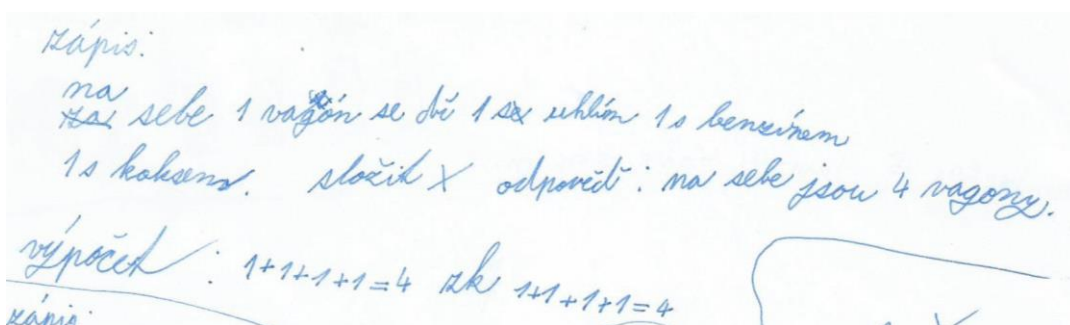 zápis:
na
za sebe 1 vagón se dvě 1 se uhlím 1 s benzínem
1 s koksem. složit X odpověď: na sebe jsou 4 vagony.
výpočet: 1+1+1+1=4 zk 1+1+1+1=4
zápis: